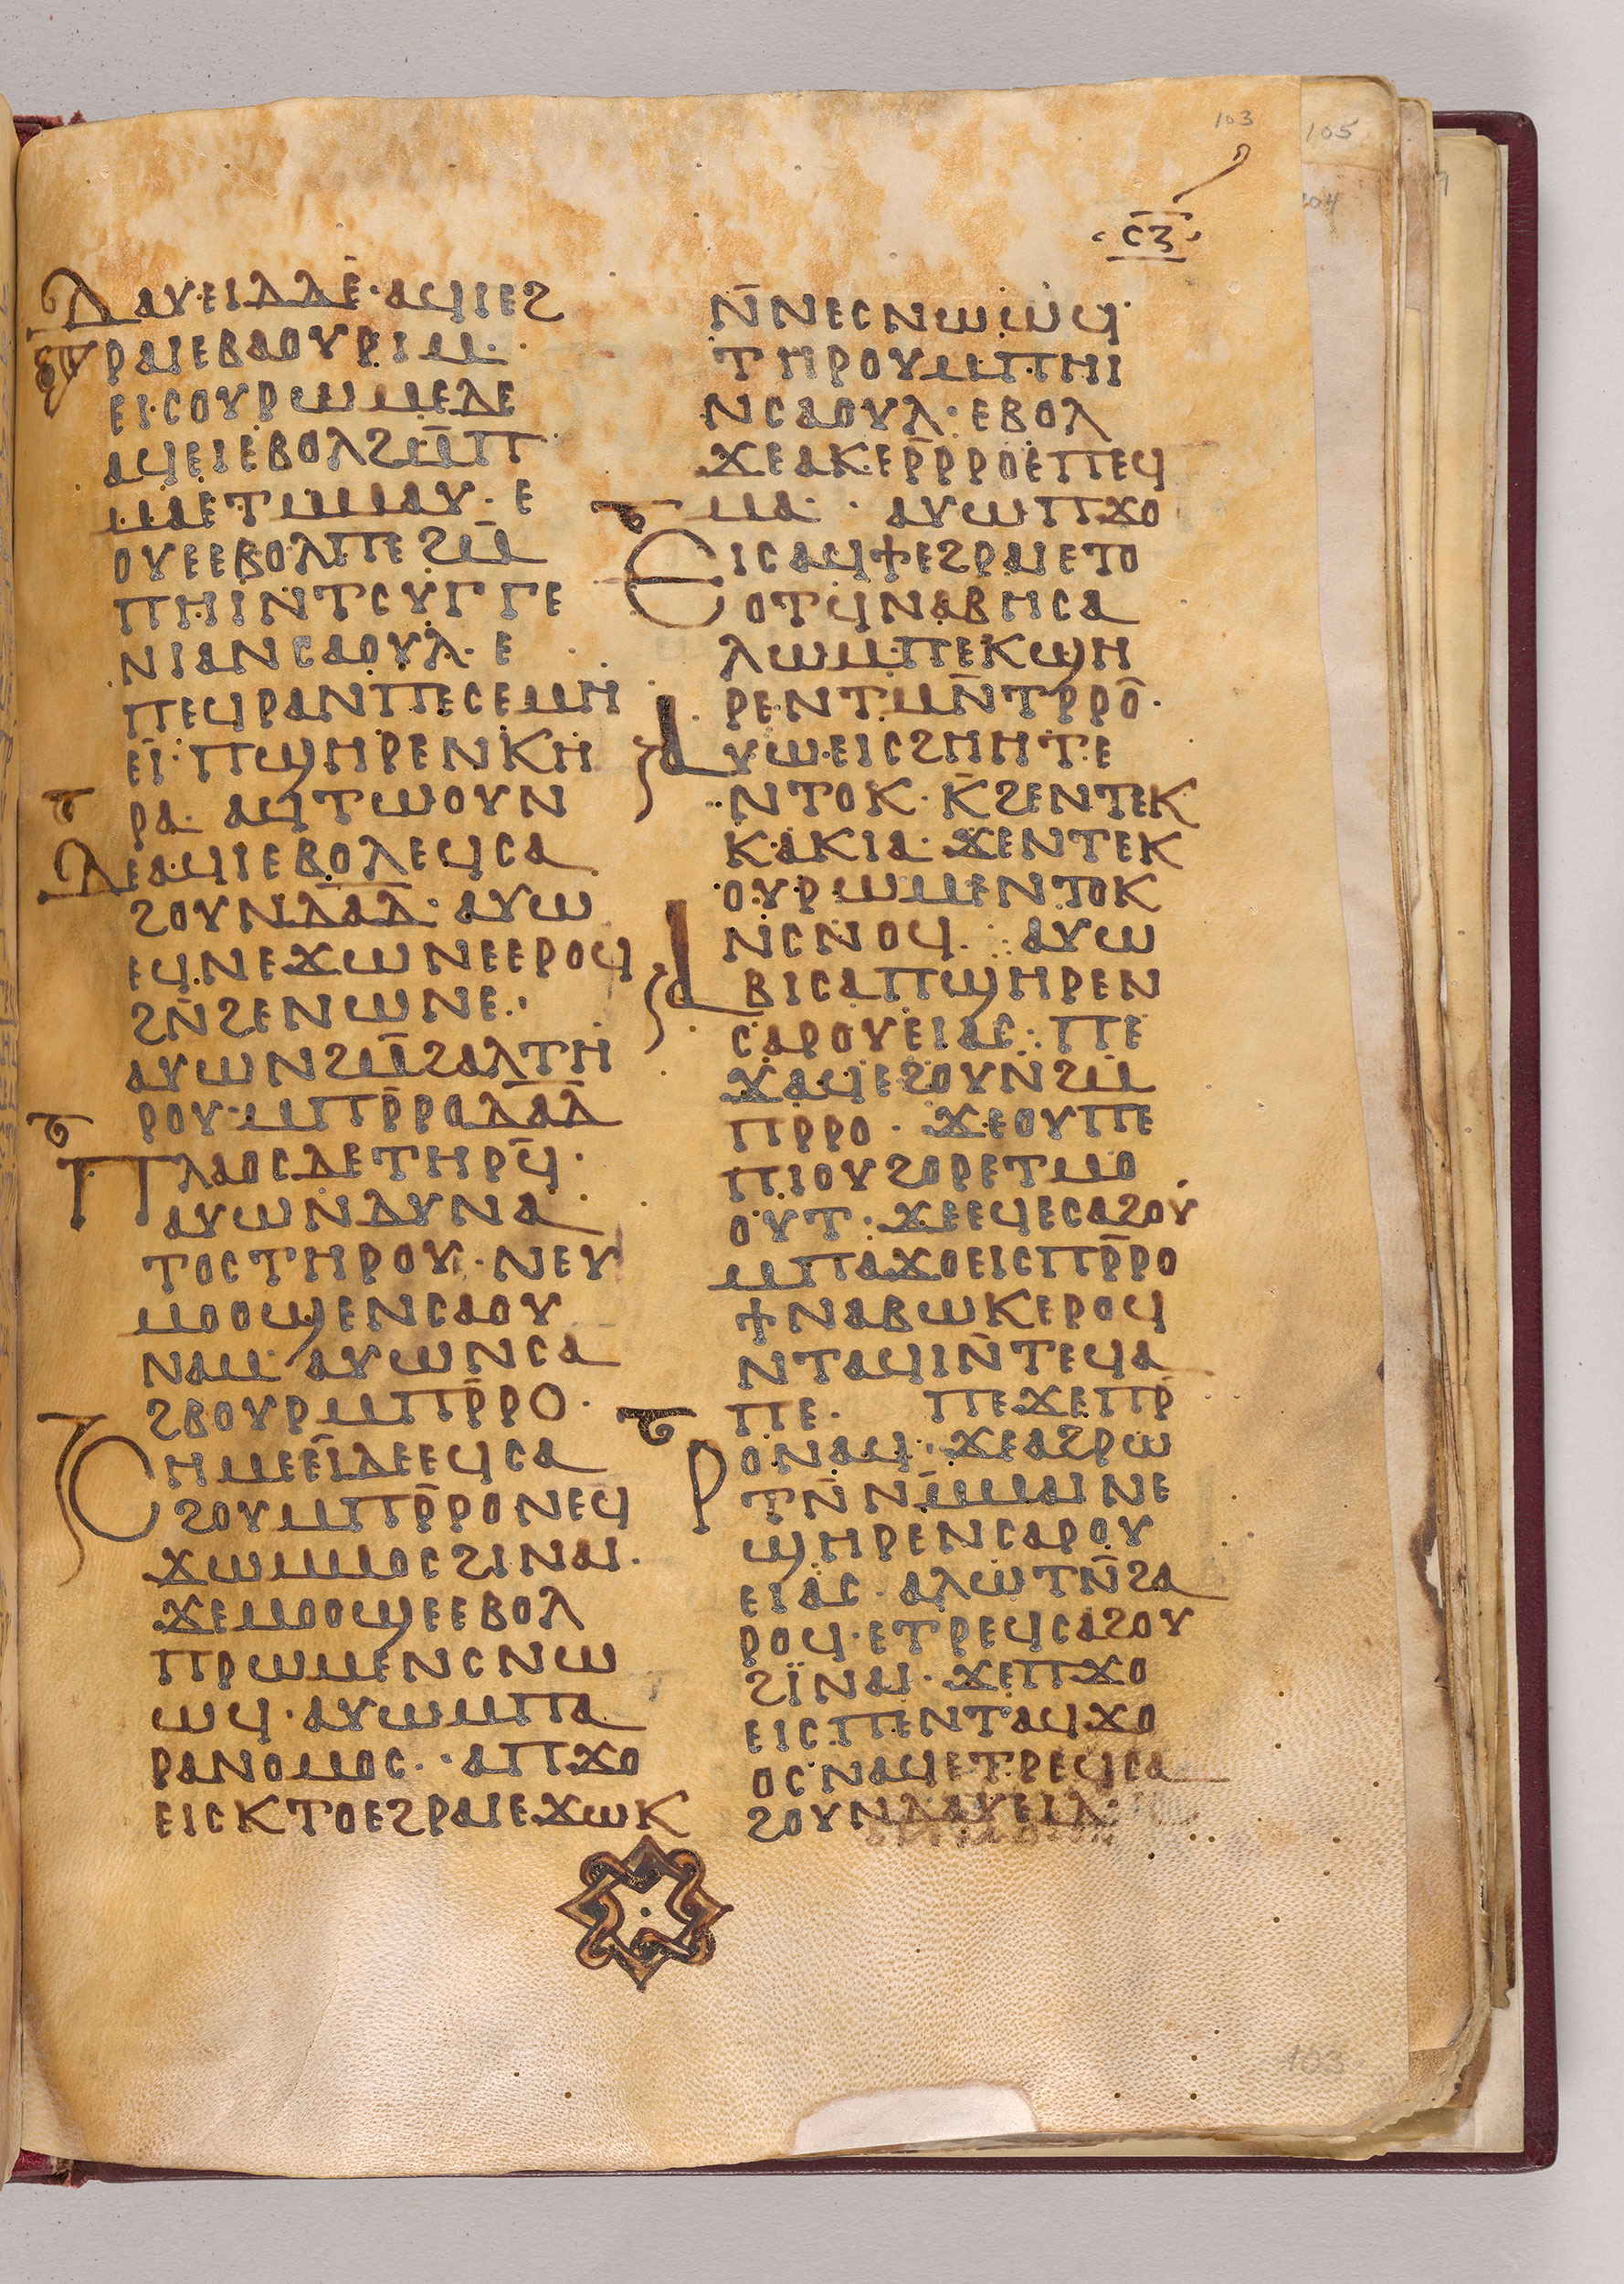 103
105
104
ⲥⲍ
ⲇⲁⲩⲉⲓⲇⲇⲉ· ⲁϥⲓⲉϩ
ⲣⲁⲓⲉⲃⲁⲟⲩⲣⲓⲙ·
ⲉⲓⲥⲟⲩⲣⲱⲙⲉⲇⲉ
ⲁϥⲉⲓⲉⲃⲟⲗϩⲙ̅ⲡ
ⲙⲁⲉⲧⲙⲙⲁⲩ· ⲉ
ⲟⲩⲉⲉⲃⲟⲗⲡⲉϩⲙ̅
ⲡⲏⲓⲛⲧⲥⲩⲅⲅⲉ
ⲛⲓⲁⲛⲥⲁⲟⲩⲗ· ⲉ
ⲡⲉϥⲣⲁⲛⲡⲉⲥⲉⲙⲏ
ⲉⲓ· ⲡϣⲏⲣⲉⲛⲕⲏ
ⲣⲁ· ⲁϥⲧⲱⲟⲩⲛ
ⲇⲉⲁϥⲓⲉⲃⲟⲗⲉϥⲥⲁ
ϩⲟⲩⲛⲇⲁⲇ̅· ⲁⲩⲱ
ⲉϥⲛⲉϫⲱⲛⲉⲉⲣⲟϥ
ϩⲛ̅ϩⲉⲛⲱⲛⲉ·
ⲁⲩⲱⲛϩⲙ̅ϩⲁⲗⲧⲏ
ⲣⲟⲩ· ⲙⲡⲣ̅ⲣⲟⲇⲁⲇ̅
ⲡⲗⲁⲟⲥⲇⲉⲧⲏⲣϥ̅·
ⲁⲩⲱⲛⲇⲩⲛⲁ
ⲧⲟⲥⲧⲏⲣⲟⲩ· ⲛⲉⲩ
ⲙⲟⲟϣⲉⲛⲥⲁⲟⲩ
ⲛⲁⲙ· ⲁⲩⲱⲛⲥⲁ
ϩⲃⲟⲩⲣⲙⲡⲣ̅ⲣⲟ·
ⲥⲏⲙⲉⲉⲓⲇⲉⲉϥⲥⲁ
ϩⲟⲩⲙⲡⲣ̅ⲣⲟⲛⲉϥ
ϫⲱⲙⲙⲟⲥϩⲓⲛⲁⲓ·
ϫⲉⲙⲟⲟϣⲉⲉⲃⲟⲗ
ⲡⲣⲱⲙⲉⲛⲥⲛⲱ
ⲱϥ· ⲁⲩⲱⲙⲡⲁ
ⲣⲁⲛⲟⲙⲟⲥ· ⲁⲡϫⲟ
ⲉⲓⲥⲕⲧⲟⲉϩⲣⲁⲓⲉϫⲱⲕ
ⲛ̅ⲛⲉⲥⲛⲱⲱϥ·
ⲧⲏⲣⲟⲩⲙⲡⲏⲓ
ⲛⲥⲁⲟⲩⲗ· ⲉⲃⲟⲗ
ϫⲉⲁⲕⲉⲣ̅ⲣⲣⲟⲉⲡⲉϥ
ⲙⲁ· ⲁⲩⲱⲡϫⲟ
ⲉⲓⲥⲁϥϯⲉϩⲣⲁⲓⲉⲧⲟ
ⲟⲧϥⲛⲁⲃⲏⲥⲁ
ⲗⲱⲙ·ⲡⲉⲕϣⲏ
ⲣⲉⲛⲧⲙⲛ̅ⲧⲣⲣⲟ̅·
ⲁⲩⲱ·ⲉⲓⲥϩⲏⲏⲧⲉ
ⲛⲧⲟⲕ· ⲕ̅ϩⲉⲛⲧⲉⲕ
ⲕⲁⲕⲓⲁ· ϫⲉⲛⲧⲉⲕ
ⲟⲩⲣⲱⲙⲉⲛⲧⲟⲕ
ⲛⲥⲛⲟϥ· ⲁⲩⲱ
ⲁⲃⲓⲥⲁⲡϣⲏⲣⲉⲛ
ⲥⲁⲣⲟⲩⲉⲓⲁⲥ· ⲡⲉ
ϫⲁϥⲉϩⲟⲩⲛϩⲙ̅
ⲡⲣⲣⲟ· ϫⲉⲟⲩⲡⲉ
ⲡⲓⲟⲩϩⲟⲣⲉⲧⲙⲟ
ⲟⲩⲧ· ϫⲉⲉϥⲉⲥⲁϩⲟⲩ
ⲙⲡⲁϫⲟⲉⲓⲥⲡⲣ̅ⲣⲟ
ϯⲛⲁⲃⲱⲕⲉⲣⲟϥ
ⲛⲧⲁϥⲓⲛ̅ⲧⲉϥⲁ
ⲡⲉ· ⲡⲉϫⲉⲡⲣ̅
ⲣⲟⲛⲁϥ· ϫⲉⲁϩⲣⲱ
ⲧⲛ̅ⲛⲙ̅ⲙⲁⲓⲛⲉ
ϣⲏⲣⲉⲛⲥⲁⲣⲟⲩ
ⲉⲓⲁⲥ· ⲁⲗⲱⲧⲛ̅ϩⲁ
ⲣⲟϥ· ⲉⲧⲣⲉϥⲥⲁϩⲟⲩ
ϩⲓⲛⲁⲓ· ϫⲉⲡϫⲟ
ⲉⲓⲥⲡⲉⲛⲧⲁϥϫⲟ
ⲟⲥⲛⲁϥⲉⲧⲣⲉϥⲥⲁ
ϩⲟⲩⲛⲇⲁⲩⲉⲓⲇ·
103